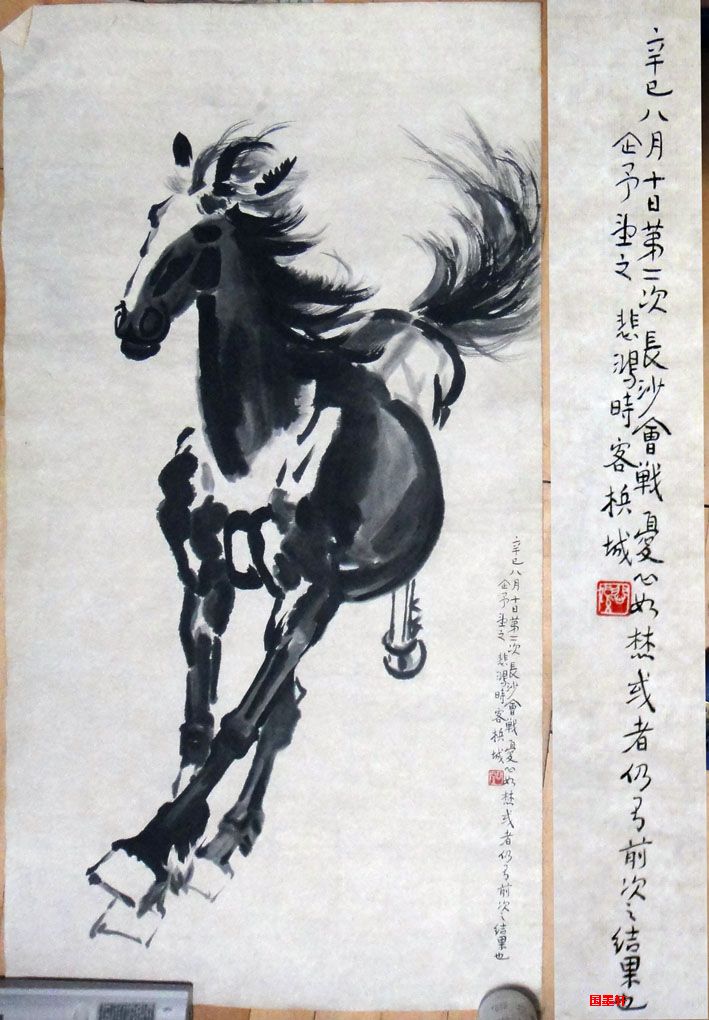 辛巳八月十日第二次長沙會戦憂心如焚或者仍有前次之結果也
企予望之 悲鴻時客梹城
辛巳八月十日第二次長沙會戦憂心如焚或者仍有前次之結果也
企予望之 悲鴻時客梹城
国墨轩